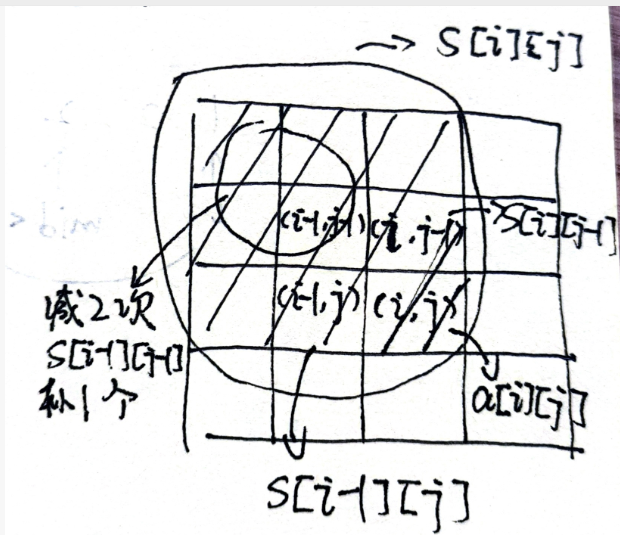 S[i][j]
(i-1,j-1) (i,j-1) S[i][j-1]
(i-1,j) (i,j)
减2次
S[i-1][j-1]
补1个
a[i][j]
S[i-1][j]